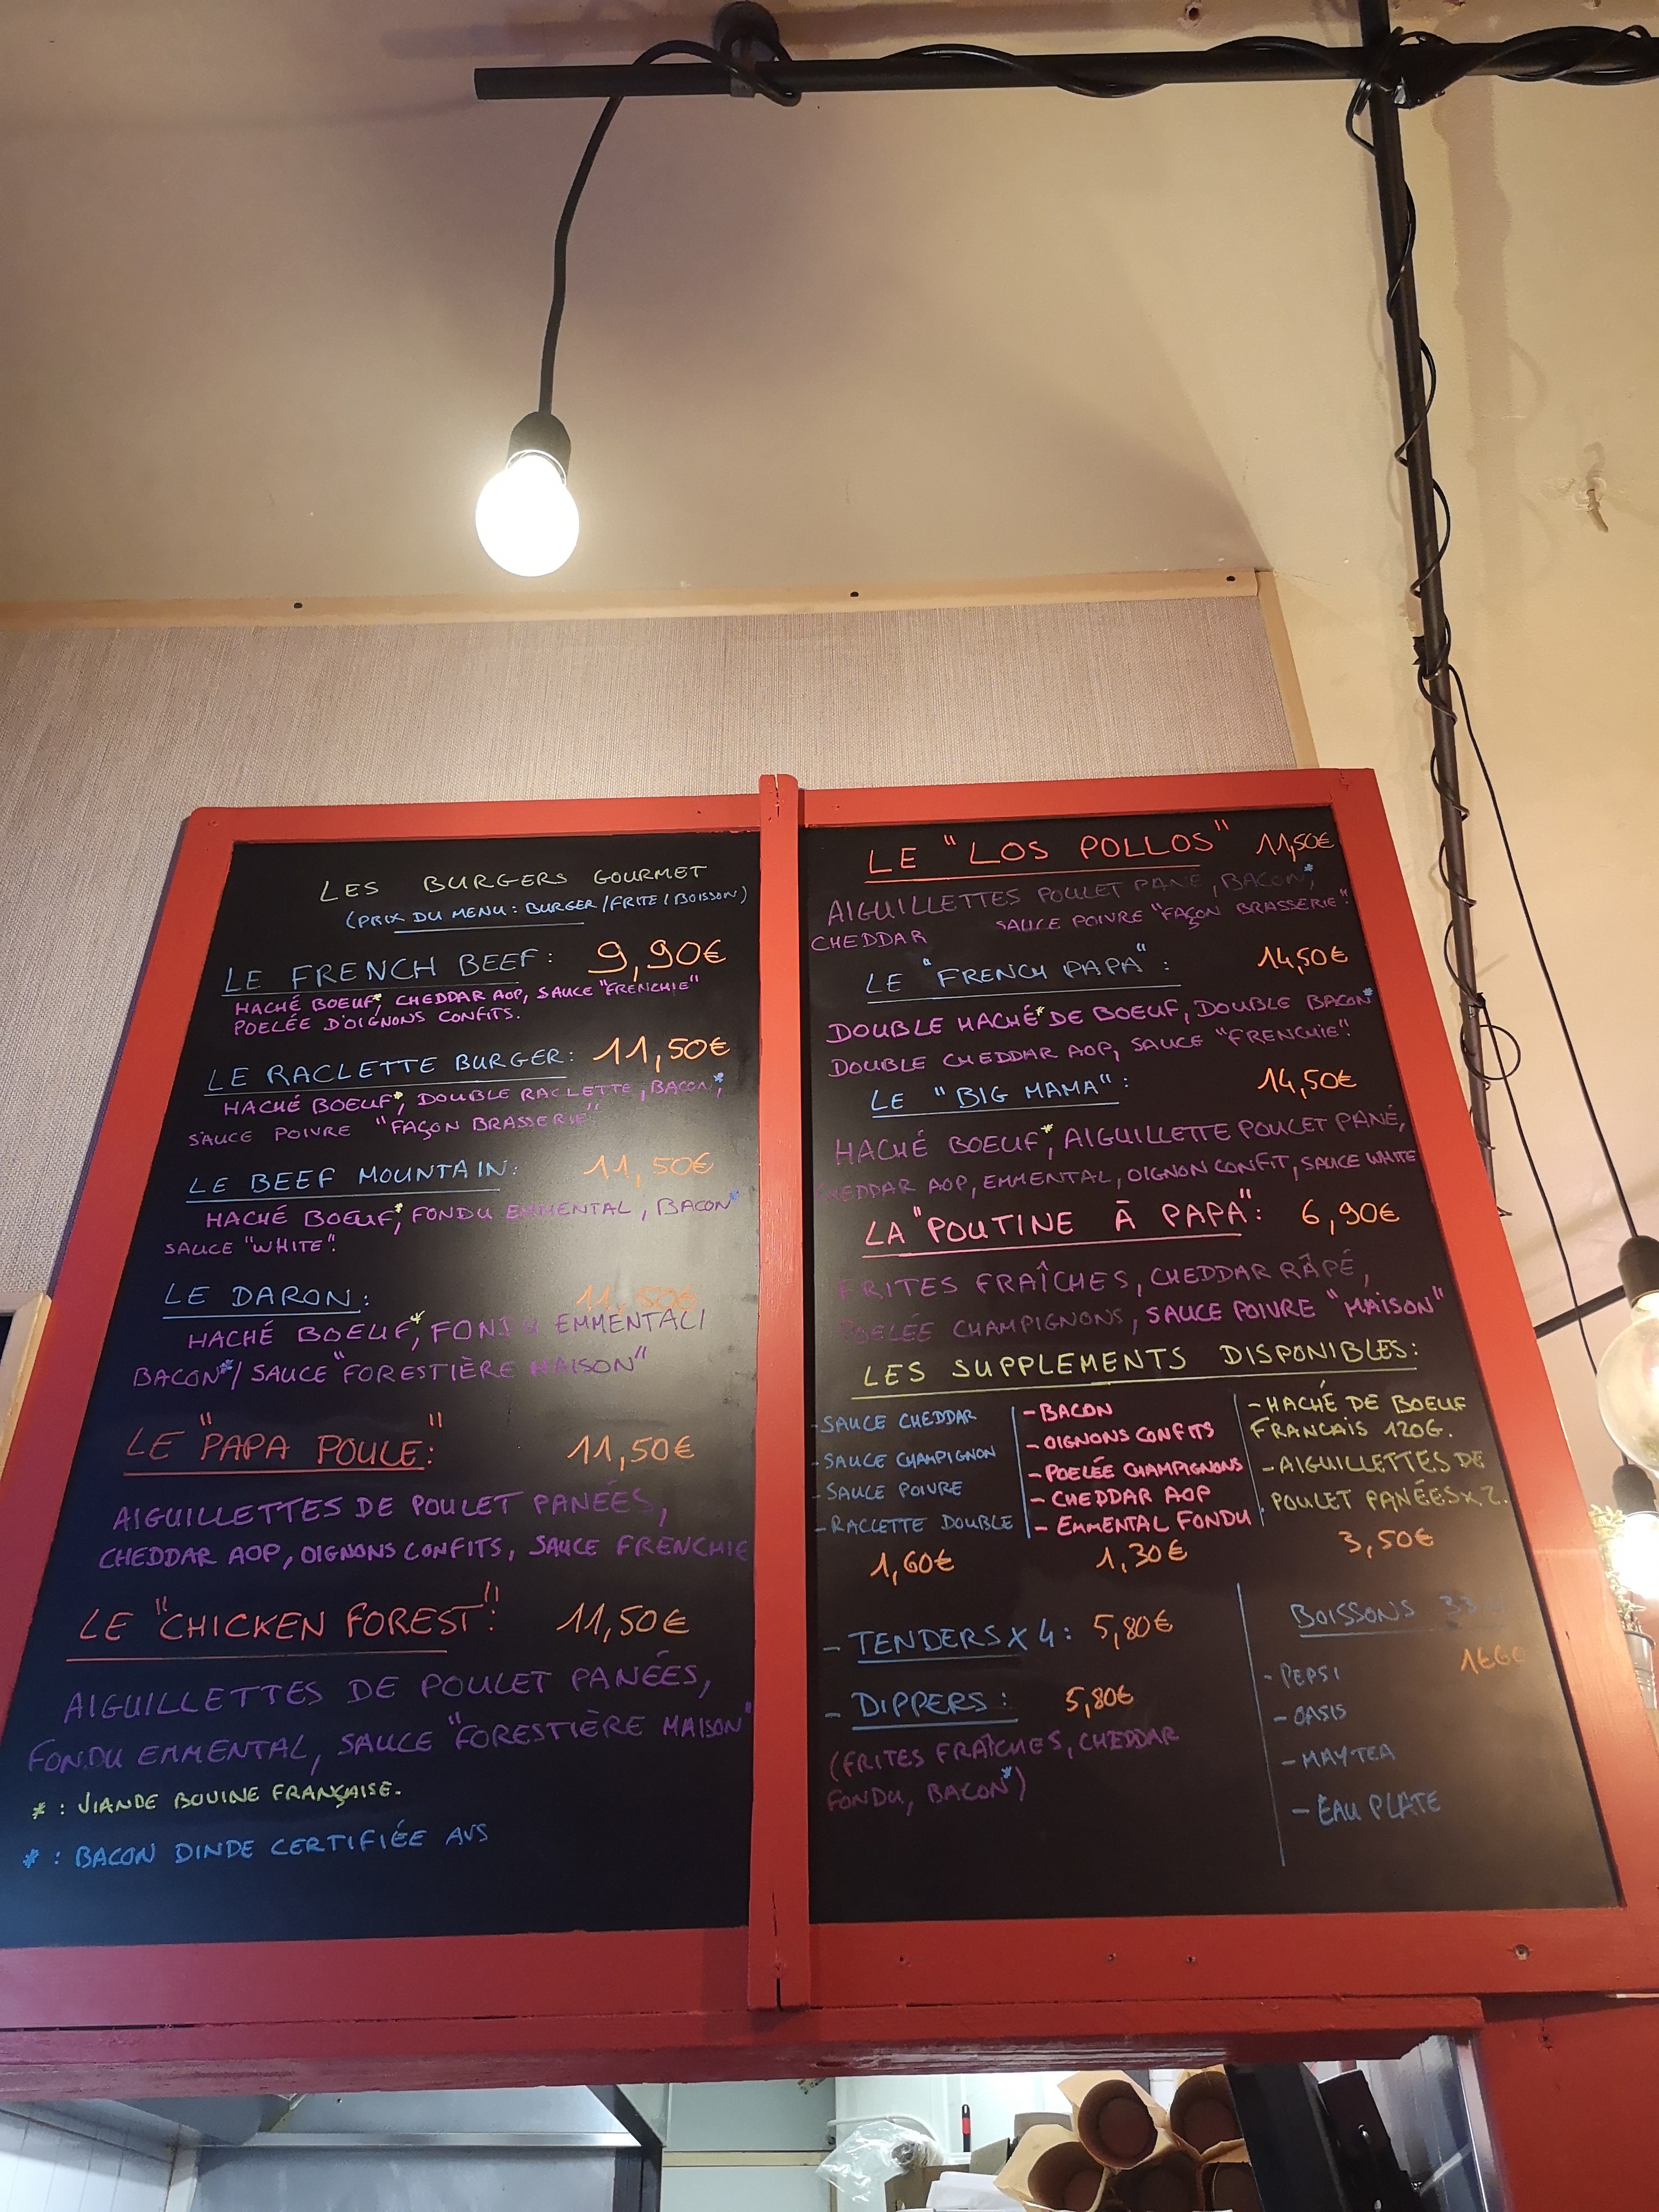 LES BURGERS GOURMET
(PRIX DU MENU : BURGER/FRITE/BOISSON)
LE FRENCH BEEF : 9,90€
HACHÉ BOEUF*, CHEDDAR AOP, SAUCE "FRENCHIE"
POELÉE D'OIGNONS CONFITS.
LE RACLETTE BURGER : 11,50€
HACHÉ BOEUF*, DOUBLE RACLETTE, BACON*,
SAUCE POIVRE "FAÇON BRASSERIE"
LE BEEF MOUNTAIN : 11,50€
HACHÉ BOEUF*, FONDU EMMENTAL, BACON*
SAUCE "WHITE".
LE DARON : 11,50€
HACHÉ BOEUF*, FONDU EMMENTAL/
BACON*/ SAUCE "FORESTIÈRE MAISON"
LE "PAPA POULE" : 11,50€
AIGUILLETTES DE POULET PANÉES,
CHEDDAR AOP, OIGNONS CONFITS, SAUCE FRENCHIE
LE "CHICKEN FOREST" : 11,50€
AIGUILLETTES DE POULET PANÉES,
FONDU EMMENTAL, SAUCE "FORESTIÈRE MAISON"
* : VIANDE BOVINE FRANÇAISE.
* : BACON DINDE CERTIFIÉE AVS
LE "LOS POLLOS" 11,50€
AIGUILLETTES POULET PANÉ, BACON*,
CHEDDAR SAUCE POIVRE "FAÇON BRASSERIE".
LE "FRENCH PAPA" : 14,50€
DOUBLE HACHÉ* DE BOEUF, DOUBLE BACON*
DOUBLE CHEDDAR AOP, SAUCE "FRENCHIE".
LE "BIG MAMA" : 14,50€
HACHÉ BOEUF*, AIGUILLETTE POULET PANÉ,
CHEDDAR AOP, EMMENTAL, OIGNON CONFIT, SAUCE WHITE
LA "POUTINE À PAPA" : 6,90€
FRITES FRAÎCHES, CHEDDAR RÂPÉ,
POELÉE CHAMPIGNONS, SAUCE POIVRE "MAISON"
LES SUPPLEMENTS DISPONIBLES :
- SAUCE CHEDDAR
- SAUCE CHAMPIGNON
- SAUCE POIVRE
- RACLETTE DOUBLE
1,60€
- BACON
- OIGNONS CONFITS
- POELÉE CHAMPIGNONS
- CHEDDAR AOP
- EMMENTAL FONDU
1,30€
- HACHÉ DE BOEUF
FRANCAIS 120G.
- AIGUILLETTES DE
POULET PANÉES x 2.
3,50€
- TENDERS x 4 : 5,80€
- DIPPERS : 5,80€
(FRITES FRAÎCHES, CHEDDAR
FONDU, BACON*)
BOISSONS
1€60
- PEPSI
- OASIS
- MAYTEA
- EAU PLATE